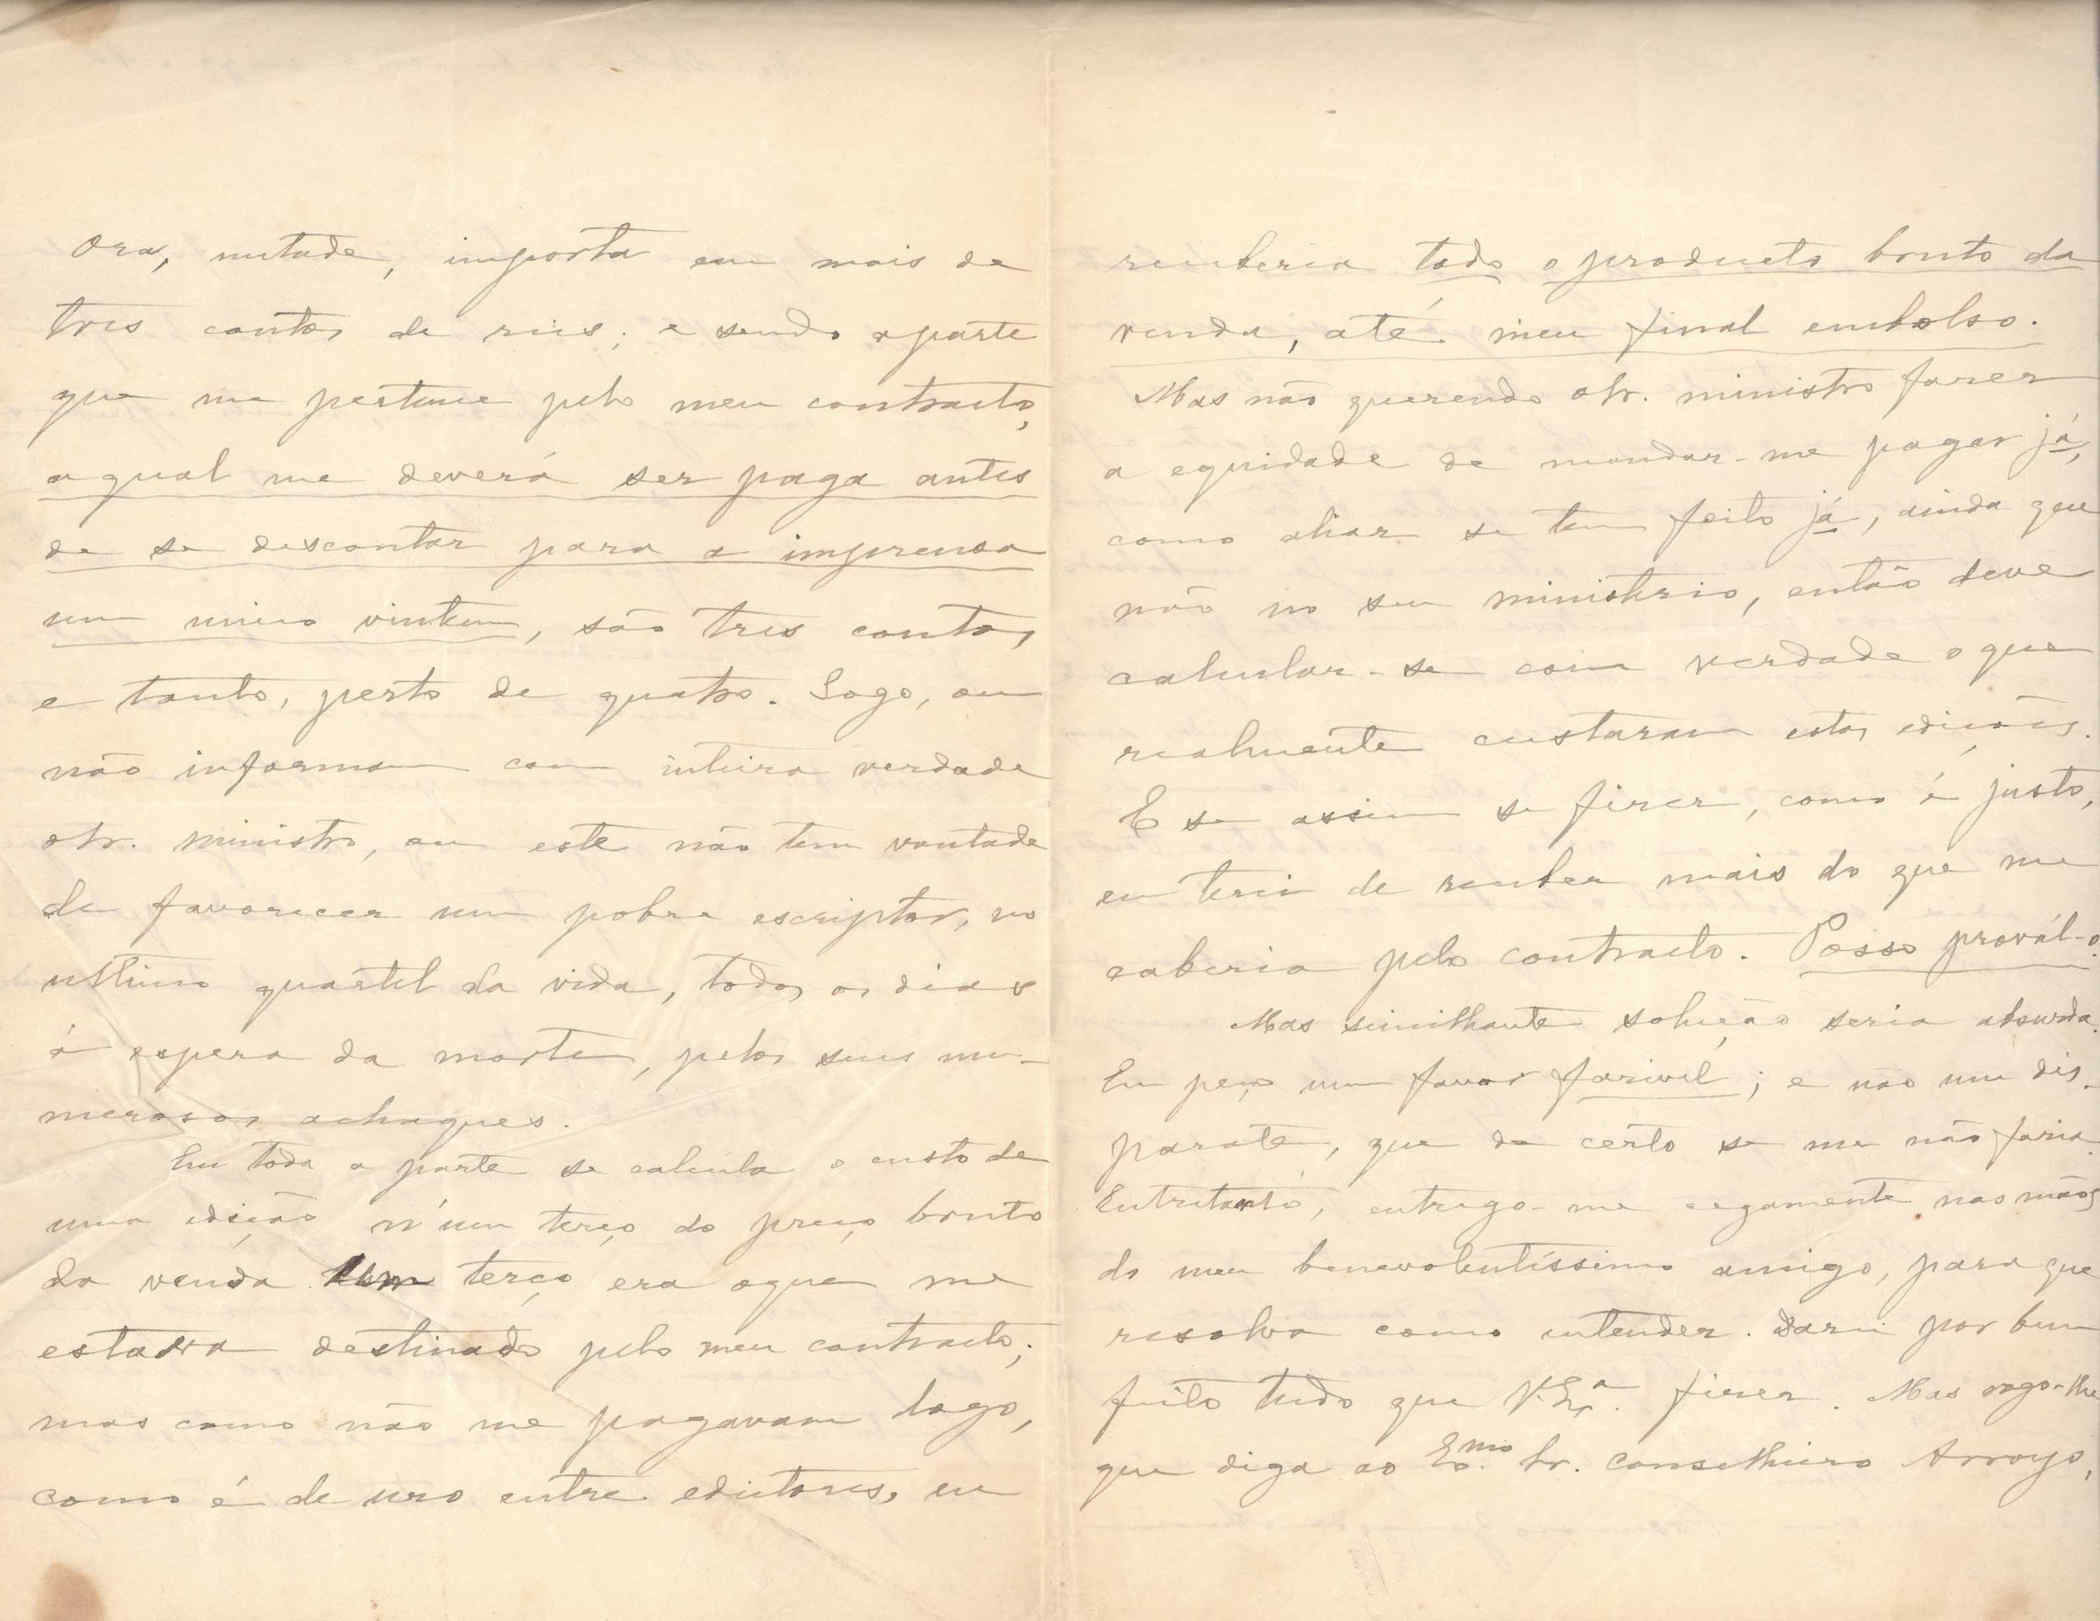 Ora, metade, importa em mais de
tres contos de reis; e sendo a parte
que me pertence pelo meu contracto,
a qual me deverá ser paga antes
de se descontar para a imprensa
um unico vintem, são tres contos
e tanto, perto de quatro. Logo, ou
não informam com inteira verdade
o sr. ministro, ou este não tem vontade
de favorecer um pobre escriptor, no
ultimo quartel da vida, todos os dias
á espera da morte, pelos seus nu-
merosos achaques.
Em toda a parte se calcula o custo de
uma edição n'um terço do preço bruto
da venda. Um terço era o que me
estava destinado pelo meu contracto;
mas como não me pagavam logo,
como é de uso entre editores, eu
receberia todo o producto bruto da
venda, até meu final embolso.
Mas não querendo o sr. ministro fazer
a equidade de mandar-me pagar já,
como aliás se tem feito já, ainda que
não no seu ministerio, então deve
calcular-se com verdade o que
realmente custaram estas edições.
E se assim se fizer, como é justo,
eu terei de receber mais do que me
caberia pelo contracto. Posso prová-l-o.
Mas similhante solução seria absurda.
Eu peço um favor fazivel; e não um dis-
parate, que de certo se me não faria.
Entretanto, entrego-me cegamente nas mãos
do meu benevolentissimo amigo, para que
resolva como entender. Darei por bem
feito tudo que V. Exª. fizer. Mas rogo-lhe
que diga ao Exmo. Sr. conselheiro Arroyo,